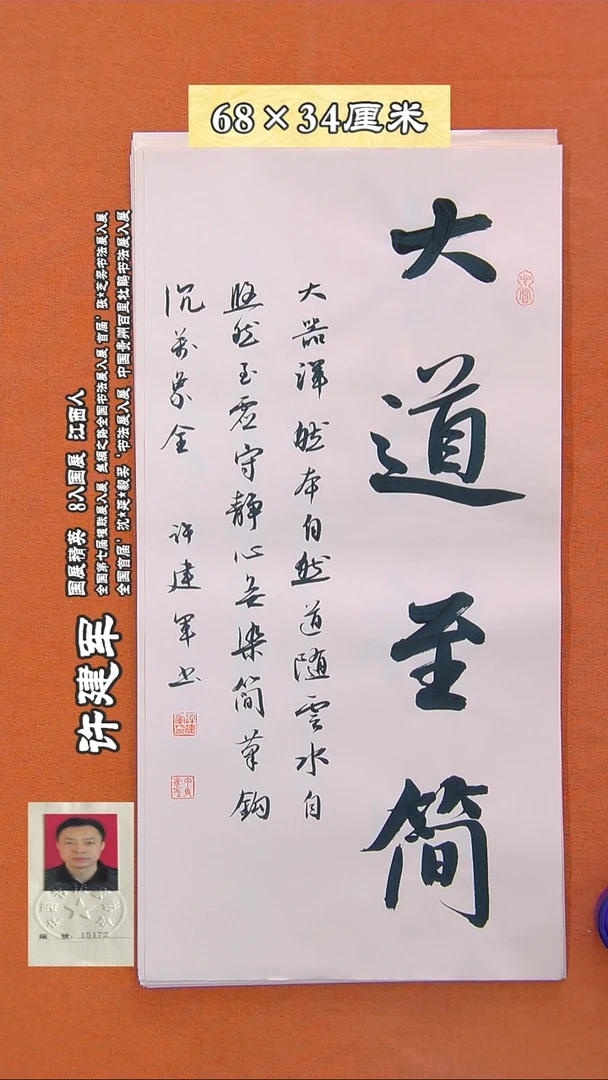 68×34厘米
大道至简
大器渾然本自然道随雲水自
悠然至虚守静心無染简筆鈎
沉萬象全 许建军书
许建军
国展精英 8入国展 江西人
全国第七届楹联展入展 丝绸之路全国书法展入展 首届'张★芝奖书法展入展
全国首届'沈★延★毅奖'书法展入展 中国贵州百里杜鹃书法展入展
編 號: 15172